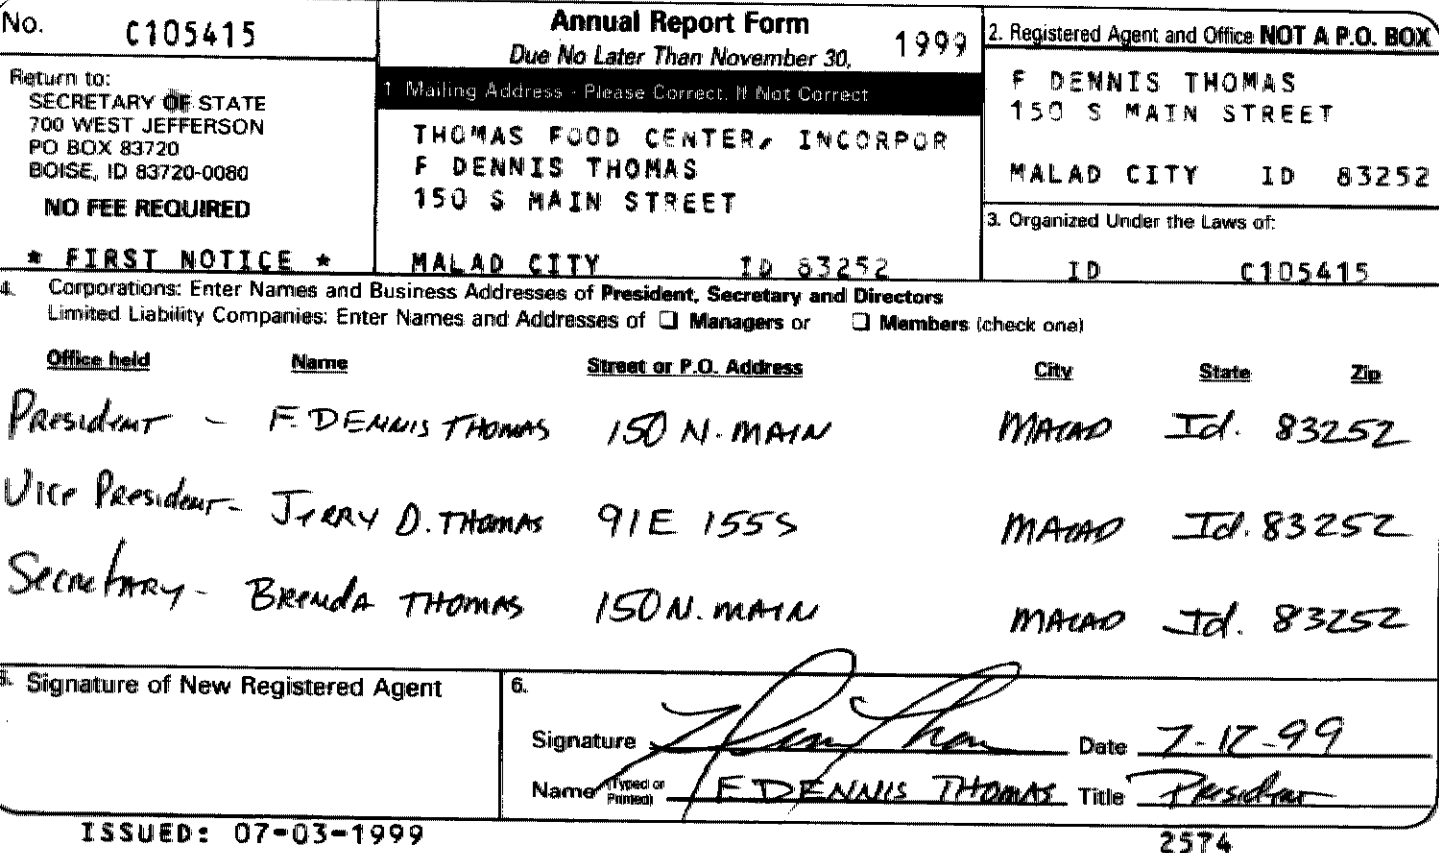 No. C105415
Return to:
SECRETARY OF STATE
700 WEST JEFFERSON
PO BOX 83720
BOISE, ID 83720-0080
NO FEE REQUIRED
* FIRST NOTICE *
Annual Report Form
Due No Later Than November 30, 1999
1 Mailing Address - Please Correct, If Not Correct
THOMAS FOOD CENTER, INCORPOR
F DENNIS THOMAS
150 S MAIN STREET
MALAD CITY ID 83252
2. Registered Agent and Office NOT A P.O. BOX
F DENNIS THOMAS
150 S MAIN STREET
MALAD CITY ID 83252
3. Organized Under the Laws of:
ID C105415
4. Corporations: Enter Names and Business Addresses of President, Secretary and Directors
Limited Liability Companies: Enter Names and Addresses of ❑ Managers or ❑ Members (check one)
Office held Name Street or P.O. Address City State Zip
President - F. DENNIS THOMAS 150 N. MAIN MALAD Id. 83252
Vice President - JERRY D. THOMAS 91E 155S MALAD Id. 83252
Secretary - BRENDA THOMAS 150 N. MAIN MALAD Id. 83252
5. Signature of New Registered Agent
6.
Signature F Dennis Thomas Date 7-12-99
Name (Typed or Printed) F. DENNIS THOMAS Title President
ISSUED: 07-03-1999
2574